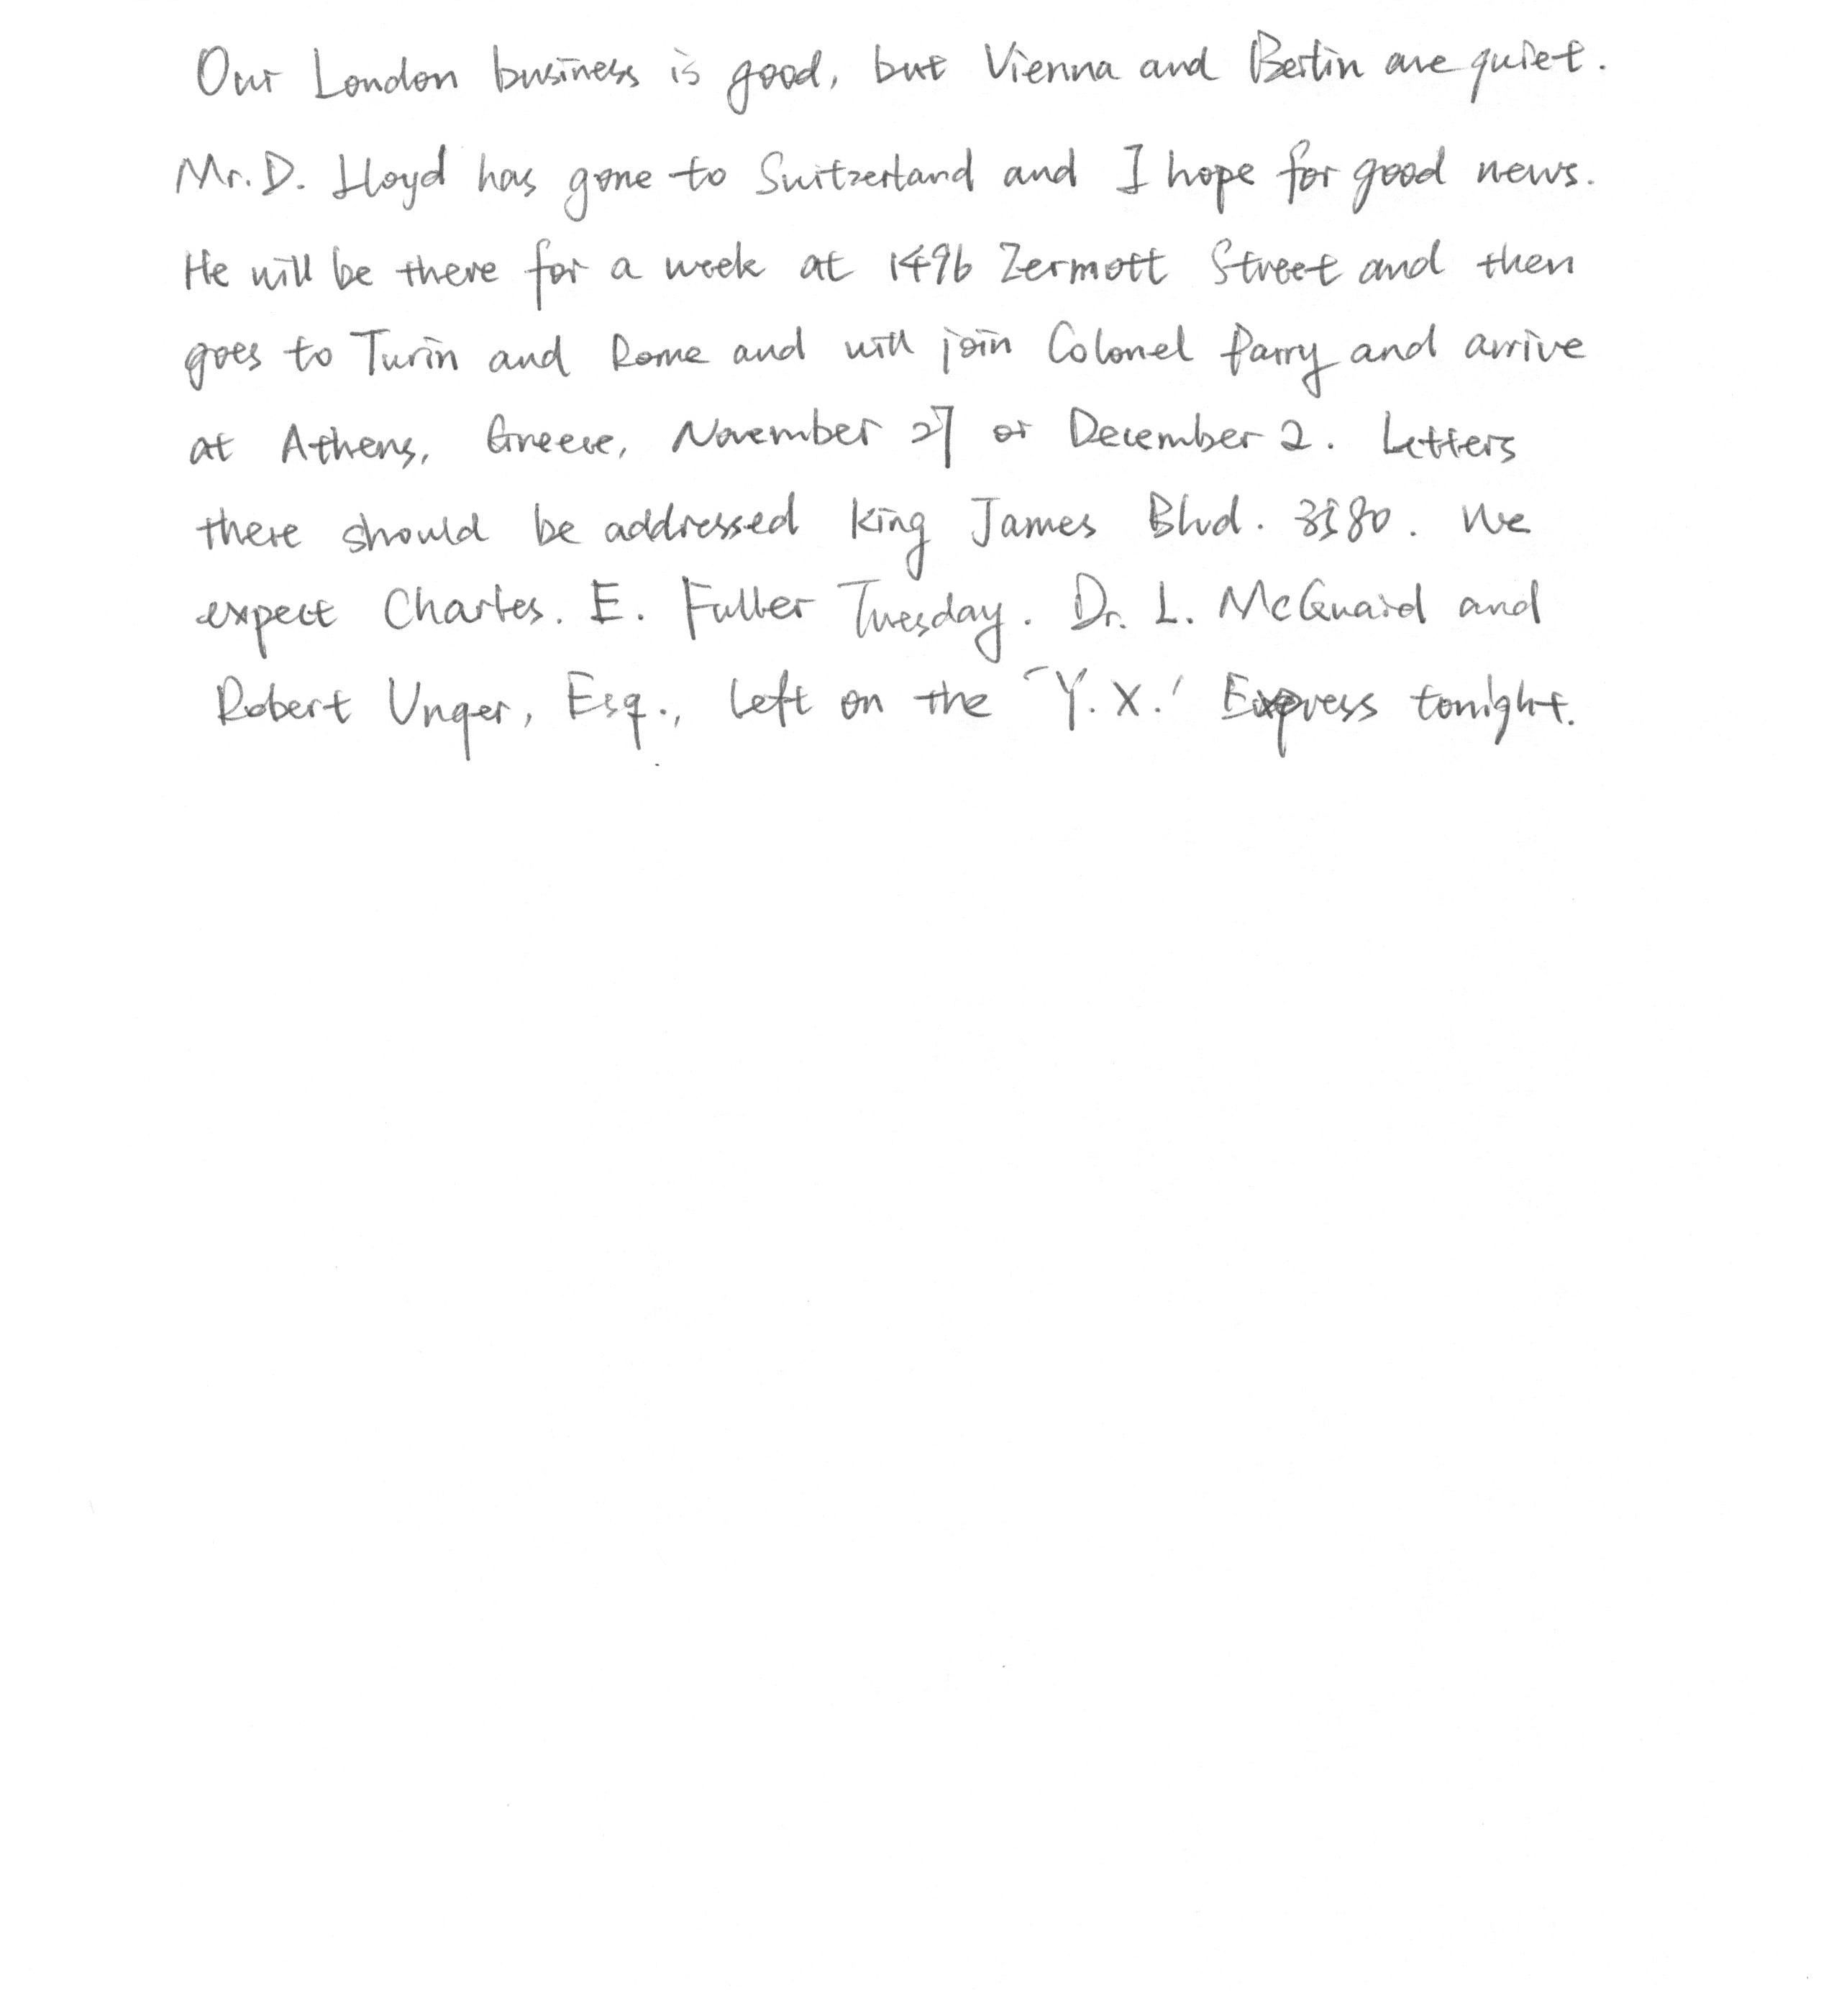 Our London business is good, but Vienna and Berlin are quiet.
Mr. D. Lloyd has gone to Switzerland and I hope for good news.
He will be there for a week at 1496 Zermott Street and then
goes to Turin and Rome and will join Colonel Parry and arrive
at Athens, Greece, November 27 or December 2. Letters
there should be addressed King James Blvd. 3580. We
expect Charles. E. Fuller Tuesday. Dr. L. McQuaid and
Robert Unger, Esq., left on the "Y.X.' Express tonight.